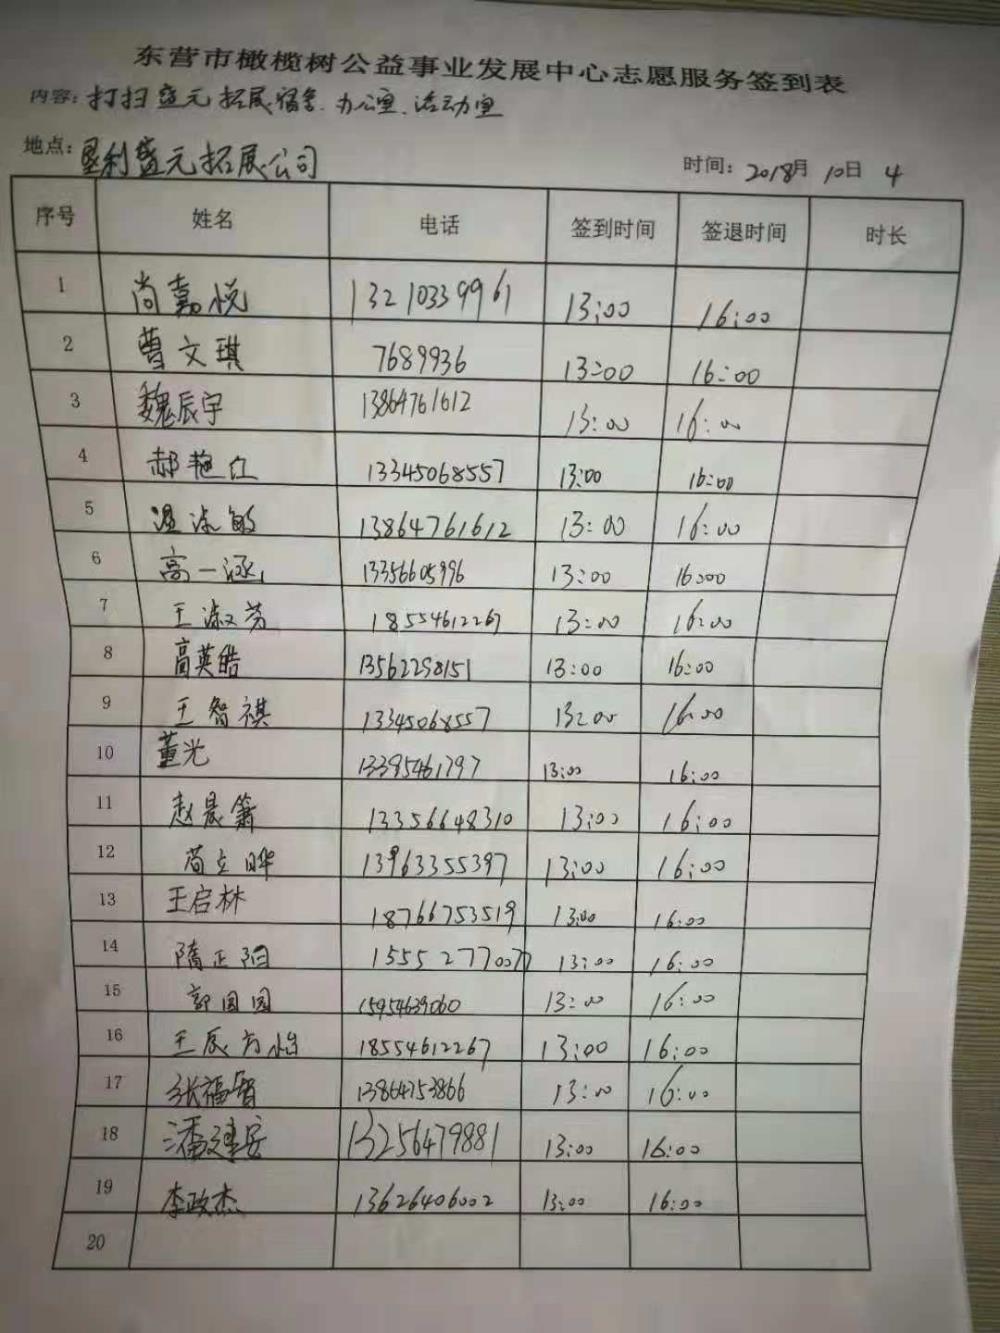 东营市橄榄树公益事业发展中心志愿服务签到表
内容：打扫盛元拓展宿舍、办公室、活动室
地点：垦利盛元拓展公司 时间：2018月 10日 4
序号 姓名 电话 签到时间 签退时间 时长
1 尚嘉悦 13210339961 13:00 16:00
2 曹文琪 7689936 13:00 16:00
3 魏辰宇 13864761612 13:00 16:00
4 郝艳红 13345068557 13:00 16:00
5 温淑敏 13864761612 13:00 16:00
6 高一涵 13356605996 13:00 16:00
7 王淑芳 18554612267 13:00 16:00
8 高英皓 13562298151 13:00 16:00
9 王智祺 13345068557 13:00 16:00
10 董光 13395461797 13:00 16:00
11 赵晨箫 13356648310 13:00 16:00
12 苟立晔 13963355397 13:00 16:00
13 王启林 18766753519 13:00 16:00
14 隋正阳 15552777007 13:00 16:00
15 郭园园 15954639060 13:00 16:00
16 王辰方怡 18554612267 13:00 16:00
17 张福智 13864753866 13:00 16:00
18 潘建安 13256479881 13:00 16:00
19 李政杰 13626406002 13:00 16:00
20